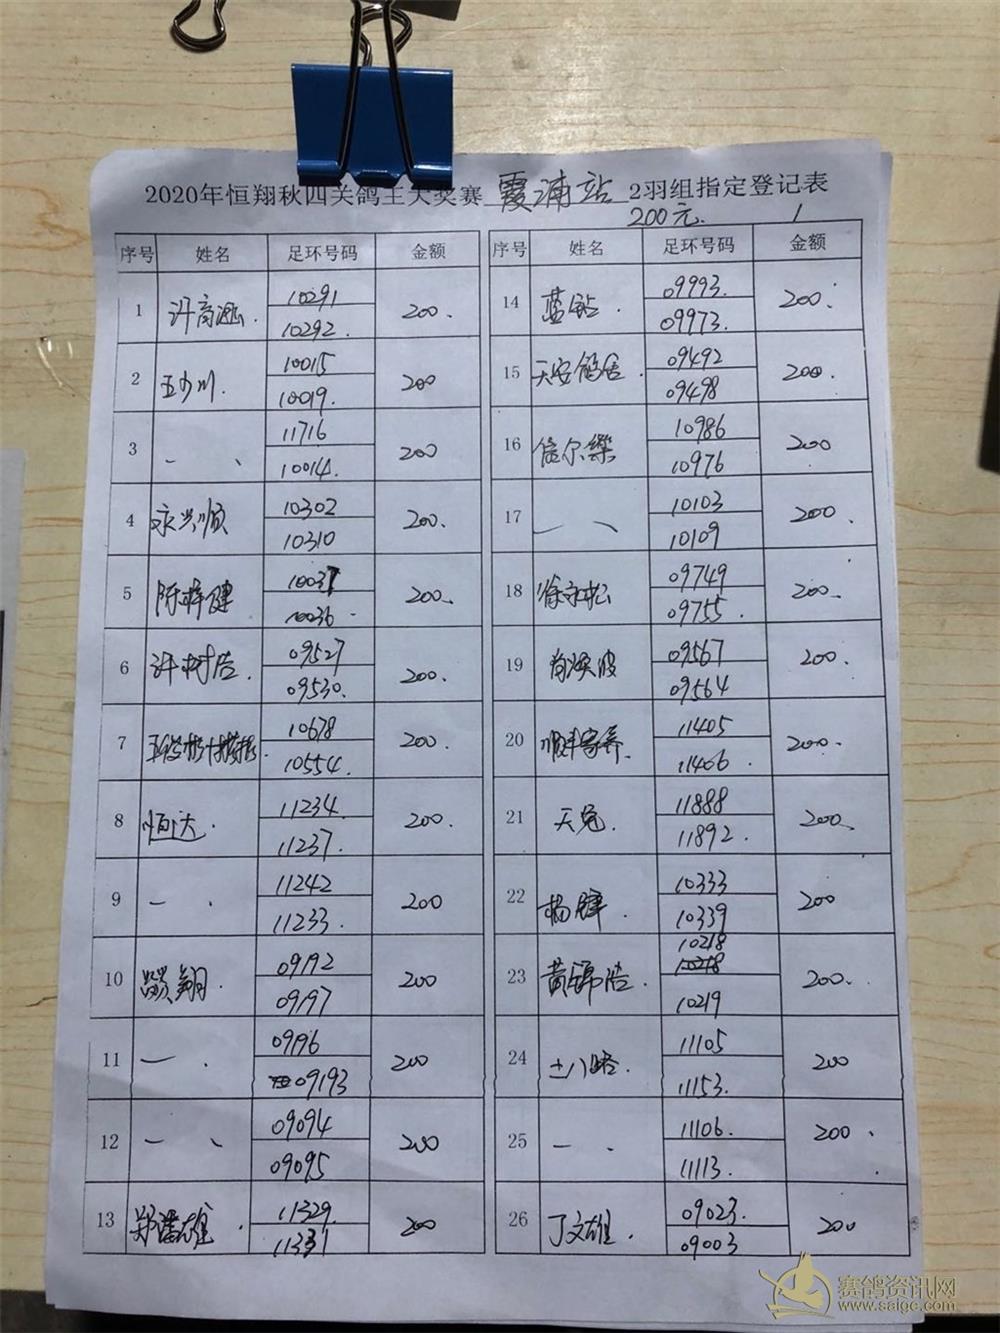 2020年恒翔秋四关鸽王大奖赛 霞浦站 2羽组指定登记表
200元. 1
序号 姓名 足环号码 金额
1 10291 200.
10292.
2 王少川. 10015 200
10019.
3 一 、 11716 200
10014.
4 永兴顺 10302 200.
10310
5 陈梓健 10037 200.
10036
6 许树浩. 09527 200.
09530.
7 10678 200.
10554.
8 恒达. 11234 200.
11237.
9 一 . 11242 200
11233.
10 翔. 09192 200
09197
11 一 . 09196 200
09193
12 一 、 09094 200
09095
13 雄. 11329. 200
11337
序号 姓名 足环号码 金额
14 蓝钻. 09993. 200.
09973.
15 天安鸽舍. 09492 200.
09498
16 信尔乐 10986 200
10976
17 一 、 10103 200
10109
18 徐守松 09749 200.
09755.
19 肖焕波 09567 200.
09564
20 11405 200.
11406
21 天宠. 11888 200.
11892.
22 杨肆. 10333 200
10339
23 黄锦浩. 10218 200.
10219
24 十八路. 11105 200
11153.
25 一 . 11106. 200
11113.
26 丁文雄. 09023. 200
09003
赛鸽资讯网
www.saigc.com